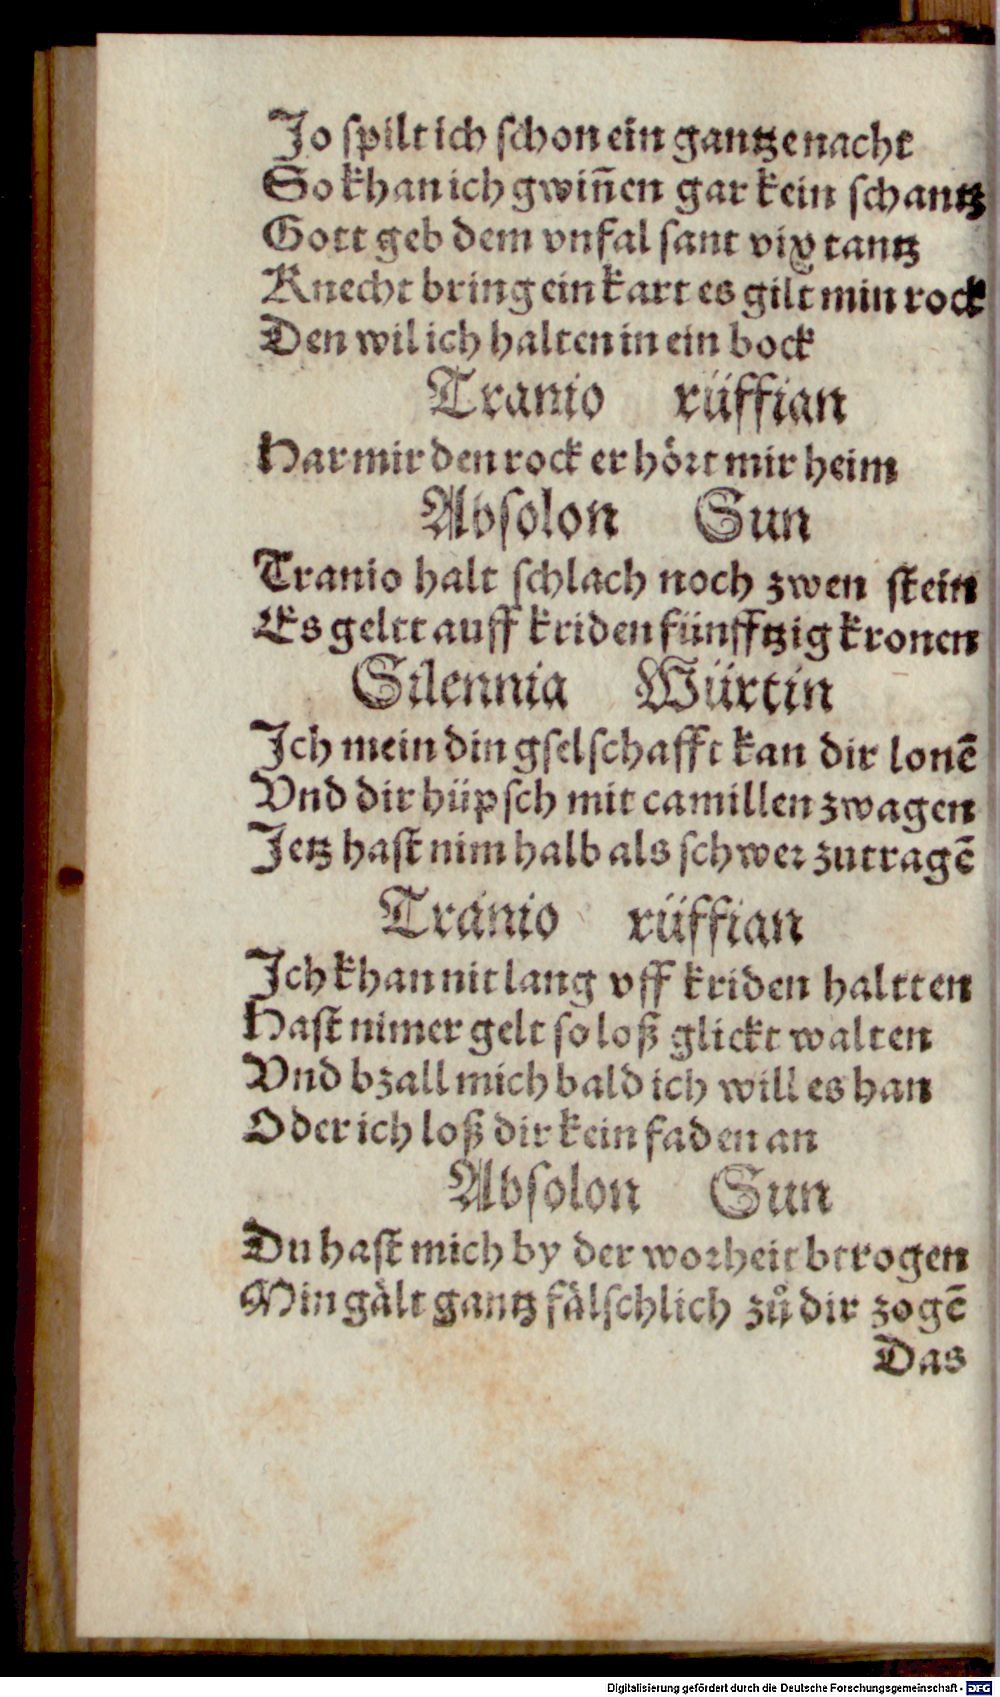 Jo spilt ich schon ein gantze nacht
So khan ich gwiñen gar kein schantz
Gott geb dem vnfal sant vix tantz
Knecht bring ein kart es gilt min rock
Den wil ich halten in ein bock
Tranio rüffian
Har mir den rock er hört mir heim
Absolon Sun
Tranio halt schlach noch zwen stein
Es geltt auff kriden fünfftzig kronen
Silennia Würtin
Ich mein din gselschafft kan dir lonē
Vnd dir hüpsch mit camillen zwagen
Jetz hast nim halb als schwer zutragē
Tranio rüffian
Ich khan nit lang vff kriden haltten
Hast nimer gelt so loß glickt walten
Vnd bzall mich bald ich will es han
Oder ich loß dir kein faden an
Absolon Sun
Du hast mich by der worheit btrogen
Min gält gantz fälschlich zů dir zogē
Das
Digitalisierung gefördert durch die Deutsche Forschungsgemeinschaft - DFG